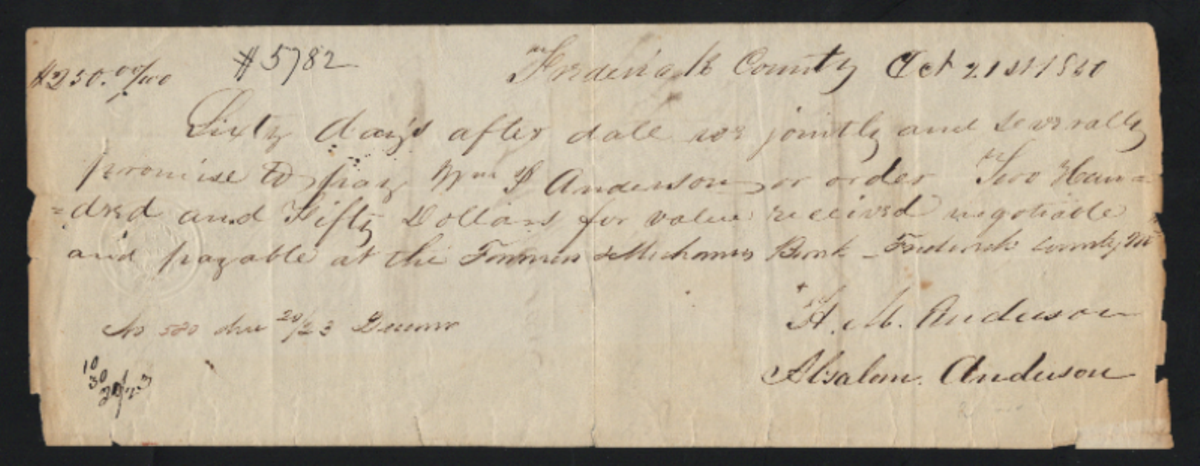 $250.00/100 #5782 Frederick County Oct 21st 1860
Sixty day's after date we jointly and severally
promise to pay Wm J Anderson or order Two Hun=
=dred and Fifty Dollars for value received negotiable
and payable at the Farmers & Mechanics Bank - Frederick County Md
No 580 due 20/23 Decemr
H. M. Anderson
10
30
20/23
Absalom Anderson